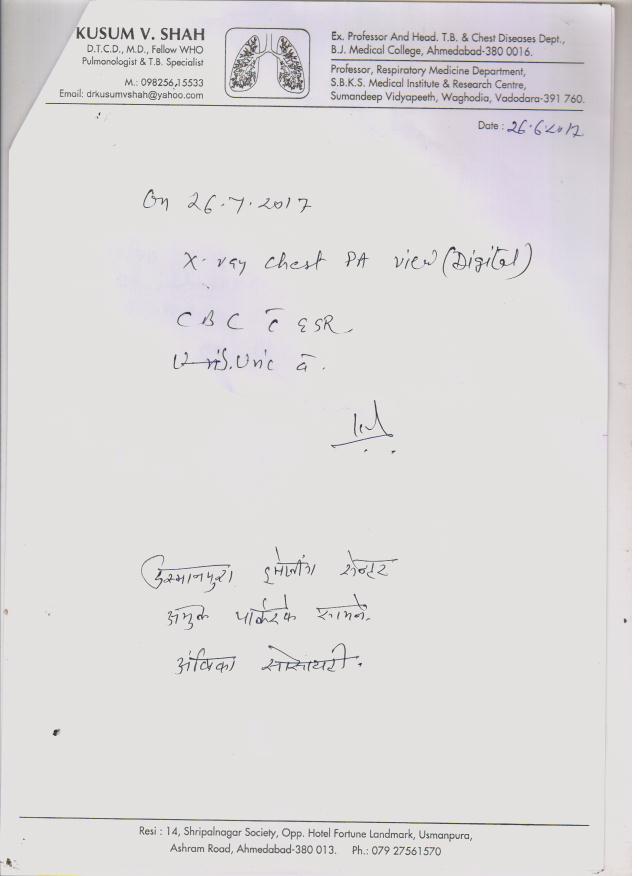 KUSUM V. SHAH
D.T.C.D., M.D., Fellow WHO
Pulmonologist & T.B. Specialist
M.: 098256,15533
Email: drkusumvshah@yahoo.com
Ex. Professor And Head. T.B. & Chest Diseases Dept.,
B.J. Medical College, Ahmedabad-380 0016.
Professor, Respiratory Medicine Department,
S.B.K.S. Medical Institute & Research Centre,
Sumandeep Vidyapeeth, Waghodia, Vadodara-391 760.
Date : 26.6.2017
On 26.7.2017
X-ray chest PA view (Digital)
CBC c̄ ESR
S. Uric a.
उस्मानपुरा इमेजींग सेन्टर
अमुल पार्लर के सामने.
अंबिका सोसायटी.
Resi : 14, Shripalnagar Society, Opp. Hotel Fortune Landmark, Usmanpura,
Ashram Road, Ahmedabad-380 013. Ph.: 079 27561570